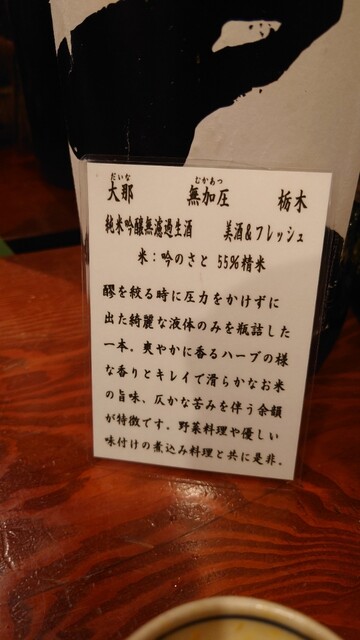 だいな むかあつ
大那 無加圧 栃木
純米吟醸無濾過生酒 美酒＆フレッシュ
米：吟のさと 55%精米
醪を絞る時に圧力をかけずに
出た綺麗な液体のみを瓶詰した
一本。爽やかに香るハーブの様
な香りとキレイで滑らかなお米
の旨味、仄かな苦みを伴う余韻
が特徴です。野菜料理や優しい
味付けの煮込み料理と共に是非。